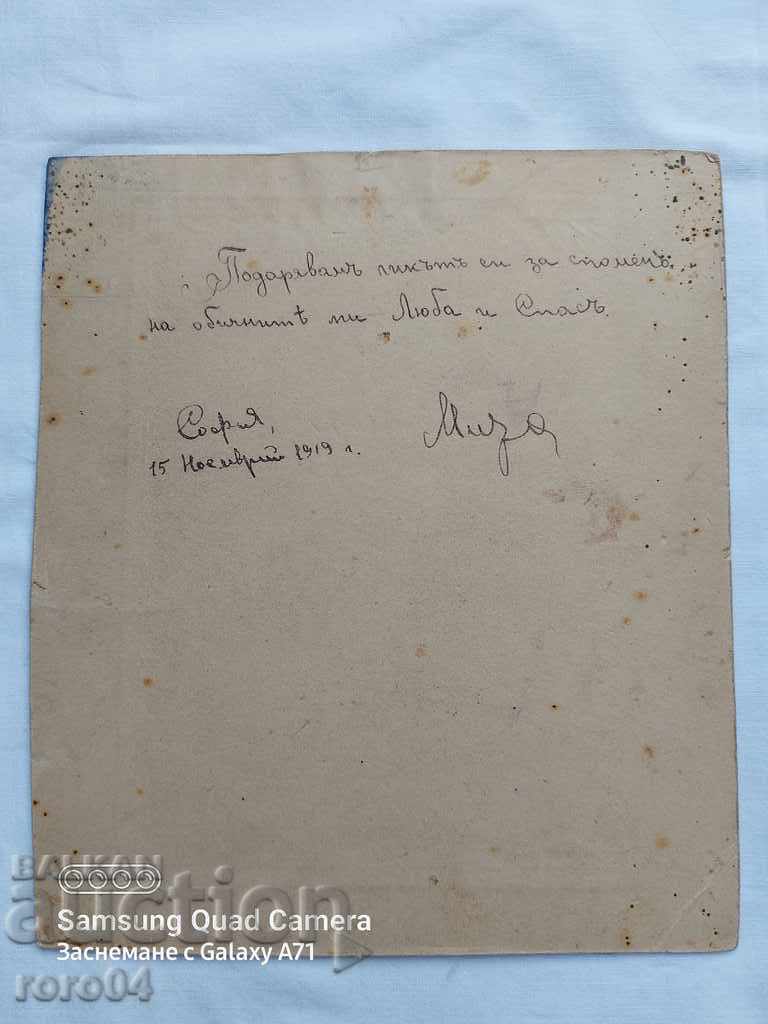 Подарявамъ ликътъ си за споменъ
на обичнитѣ ми Люба и Спасъ.
София,
15 Ноемврий 1919 г.
Миза
BALKAN
auction
Samsung Quad Camera
Заснемане с Galaxy A71
roro04